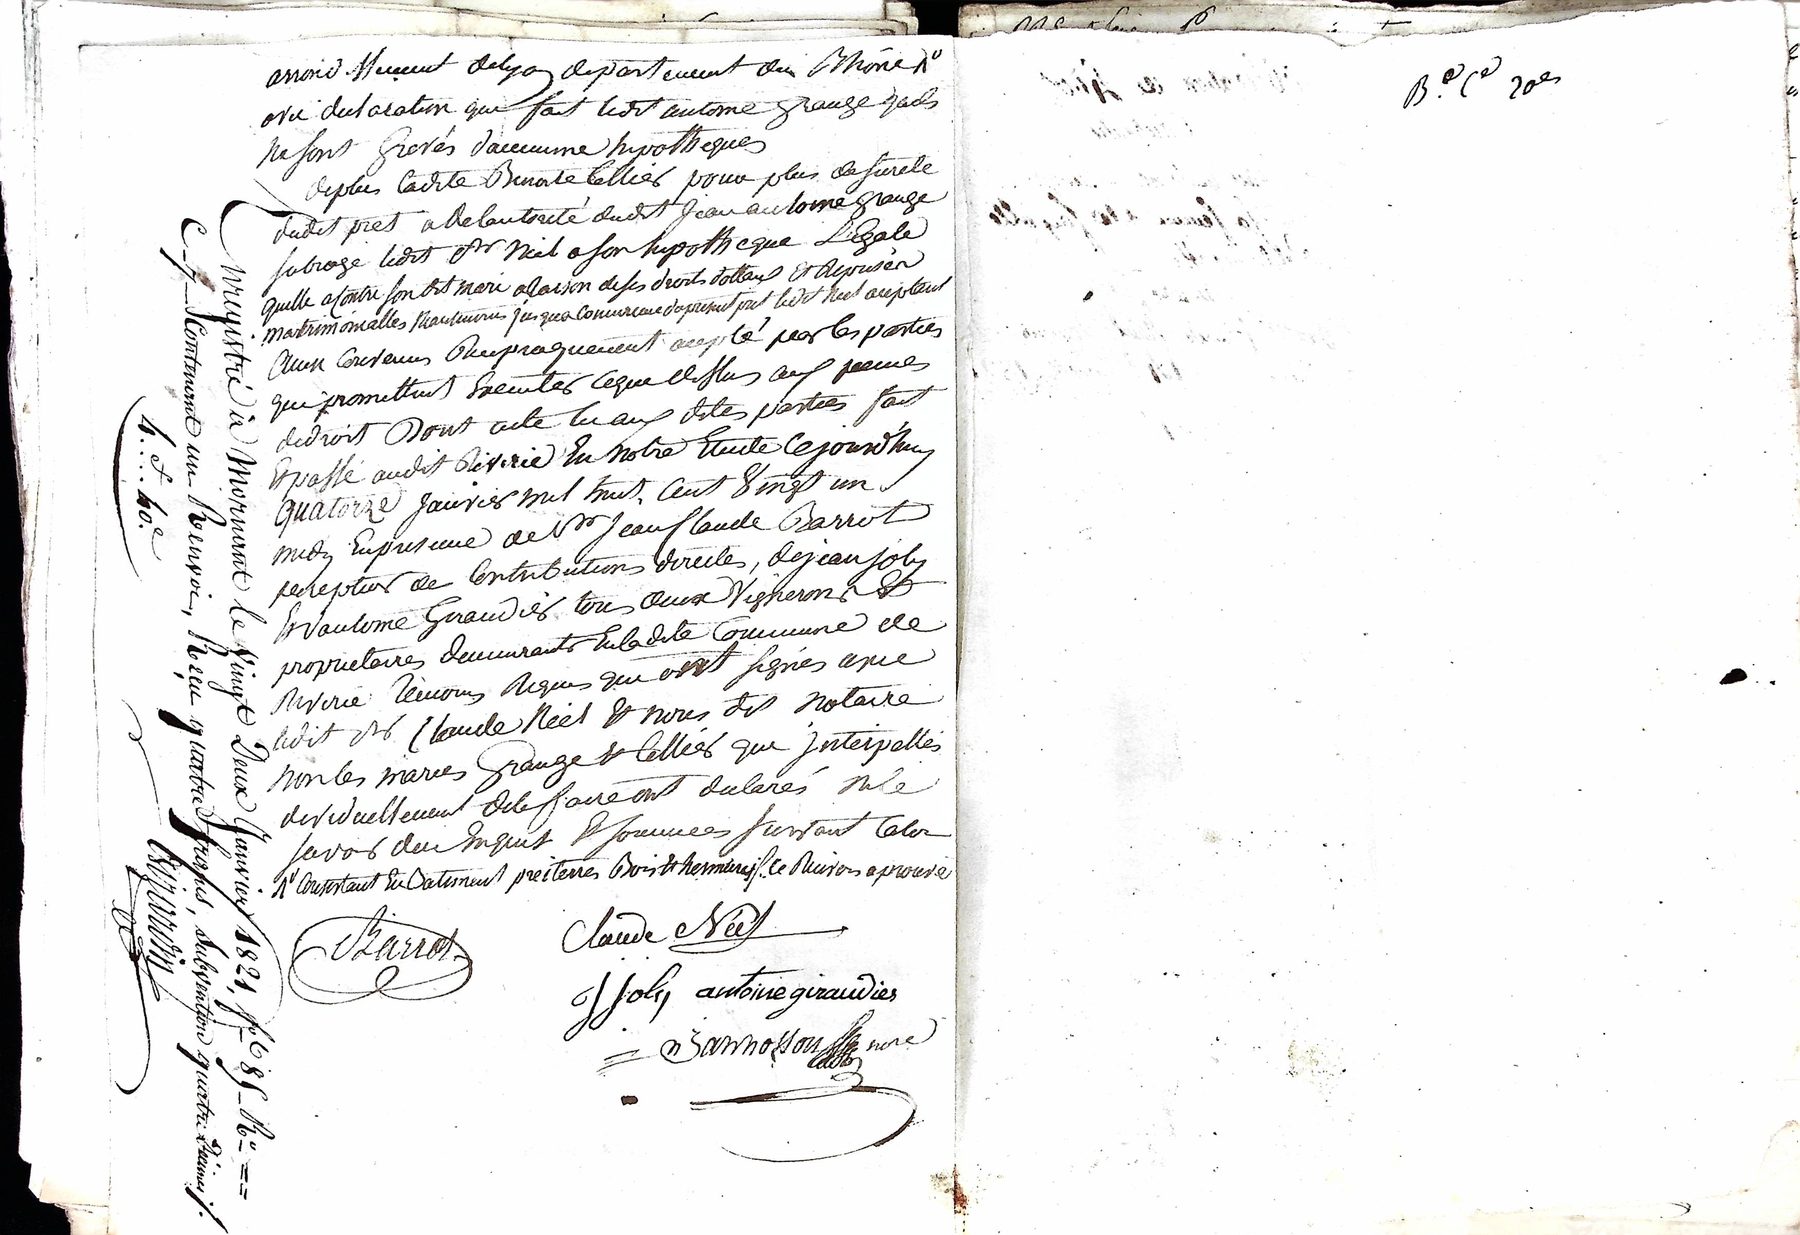 arrondissement de Lyon departement du Rhône A°
avec declaration que fait ledit antoine grange quils
ne sont Grevés daucunne hipotheques
deplus ladite Benoite Cellier pour plus de sureté
dudit pret a de lautorité dudit Jean antoine grange
subrogé ledit sr Néel a son hipotheque Légale
quelle a contre son dit mari a raison de ses droits dottaux et
matrimonialles jusqua concurrence dupresent pret ledit Néel aceptant
Ainsi convenu Reciproquement accepté par les parties
qui promettent Executer ceque dessus aux peines
de droit Dont acte lu aux dites parties fait
Et passé audit Riverie En notre Etude Cejourd'huy
quatorze Janvier mil huit cent vingt un
midy En presence de Sr Jean Claude Barrot
percepteur de Contributions directes, de jean joly
Et dantoine Giraudier tous deux Vignerons Et
proprietaires demeurants En ladite Commune de
Riverie Témoins Requis qui ont signés avec
ledit sr Claude Néel Et nous dit notaire
non les mariés Grange Et Cellier qui Interpellés
de le faire ont declarés ne le
savoir de ce Enquis Et sommés suivant la loi
A° Consistant En Batiment prés terres Bois Et hermures ce Renvoi aprouvé
Barrot
Claude Néel
J Joly antoine giraudier
Bannosson nore
Enregistré à Mornant le Vingt Deux Janvier 1821, f° 85 R°
C. 7 Contenant un Renvoi, Reçu quatre francs, subvention quatre décimes
4 f 40 c
B.e C.e 20es